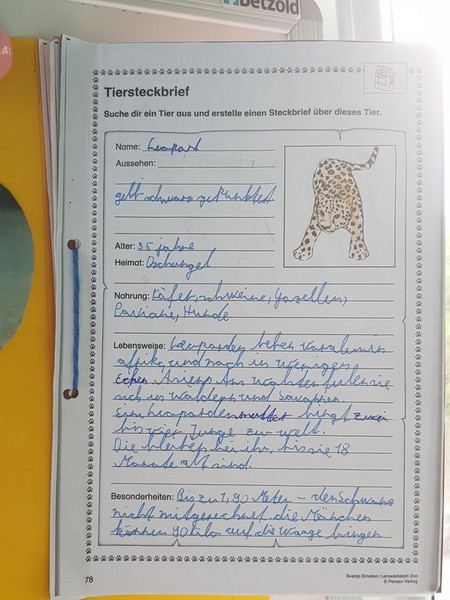 Betzold
Tiersteckbrief
Suche dir ein Tier aus und erstelle einen Steckbrief über dieses Tier.
Name: Leopard
Aussehen:
gelb schwarz gepunktet
Alter: 35 jahre
Heimat: Dschungel
Nahrung: Käfer, schweine, Gazellen,
Paviane, Hunde
Lebensweise: Leoparden leben vor allem in
afrika, und noch in wenigen
Ecken Asiens. Am wohlsten fülen sie
sich in Wäldern und Savannen.
Eine Leopardenmutter bringt zwei
bis vier Junge zur welt.
Die bleiben bei ihr, bis sie 18
Monate alt sind.
Besonderheiten: Bis zu 1,90 Meter – den Schwanz
nicht mitgerechnet die Männchen
können 90 kilo auf die Waage bringen
78
Svenja Ernsten: Lernwerkstatt Zoo
© Persen Verlag